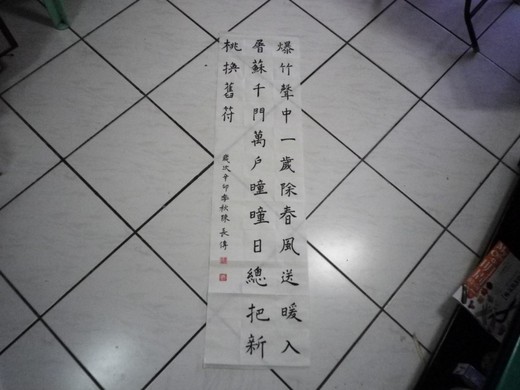 爆竹聲中一歲除春風送暖入
屠蘇千門萬戶曈曈日總把新
桃換舊符
歲次辛卯季秋陳長偉